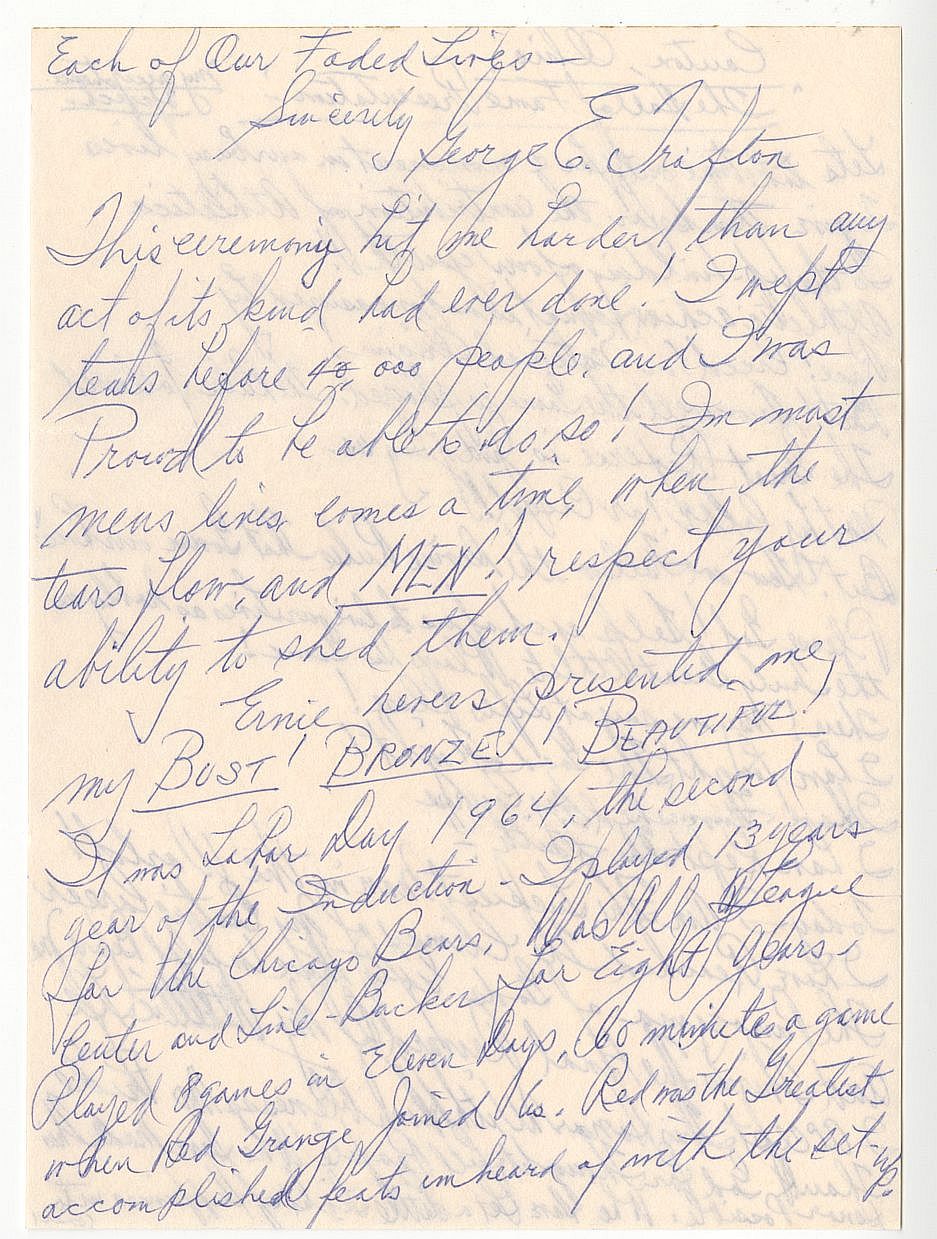 Each of Our Faded Lives –
Sincerely
George E. Trafton
This ceremony hit me harder than any
act of its kind had ever done! I wept
tears before 40,000 people, and I was
Proud to be able to do so! In most
mens lives comes a time, when the
tears flow, and MEN! respect your
ability to shed them.
Ernie nevers presented me,
my BUST! BRONZE! BEAUTIFUL!
It was Labor Day 1964, the second
year of the Induction – I played 13 years
for the Chicago Bears, Was All League
Center and Line-Backer for Eight years.
Played 8 games in Eleven Days, 60 minutes a game
when Red Grange Joined Us. Red was the Greatest
accomplished feats unheard of with the set-up.